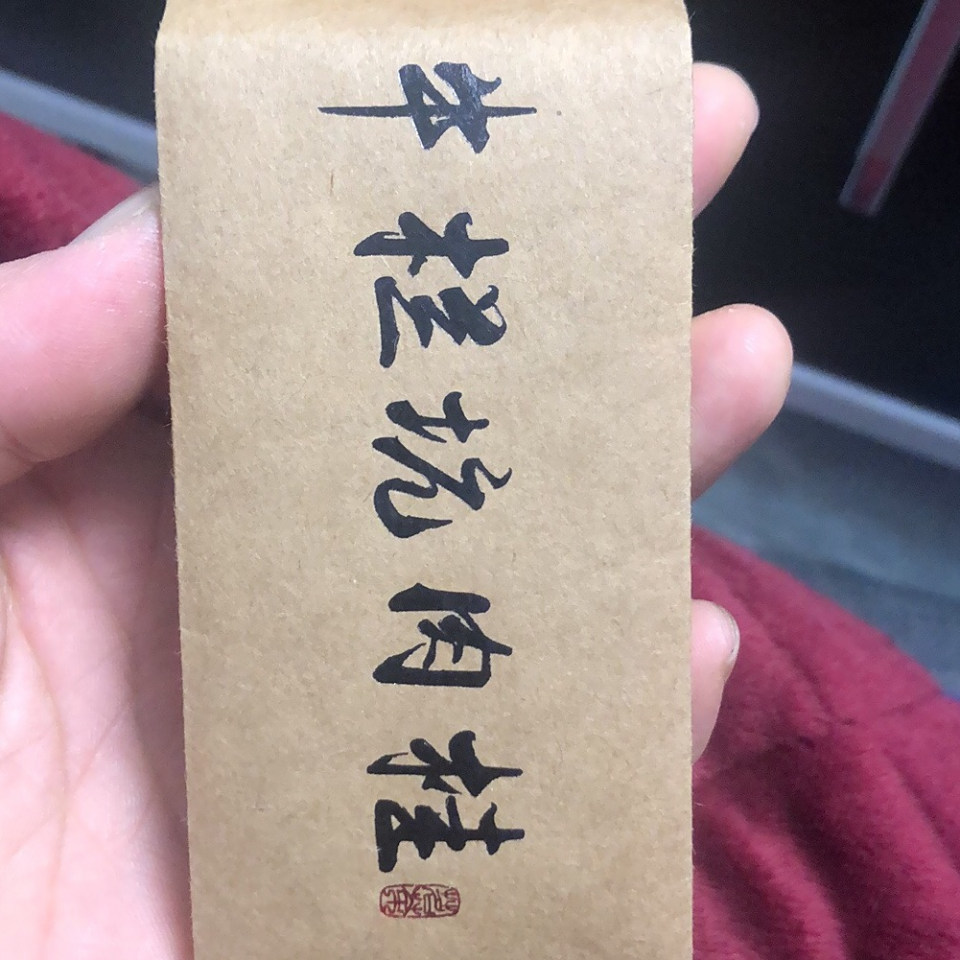 牛栏坑肉桂